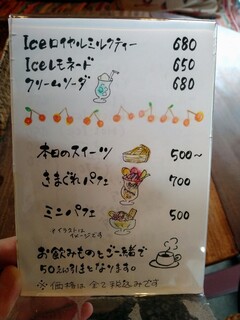 Iceロイヤルミルクティー 680
Iceレモネード 650
クリームソーダ 680
本日のスイーツ 500〜
きまぐれパフェ 700
ミニパフェ 500
※イラストは
イメージです
お飲みものとご一緒で
50えん引きとなります。
※価格は全て税込みです